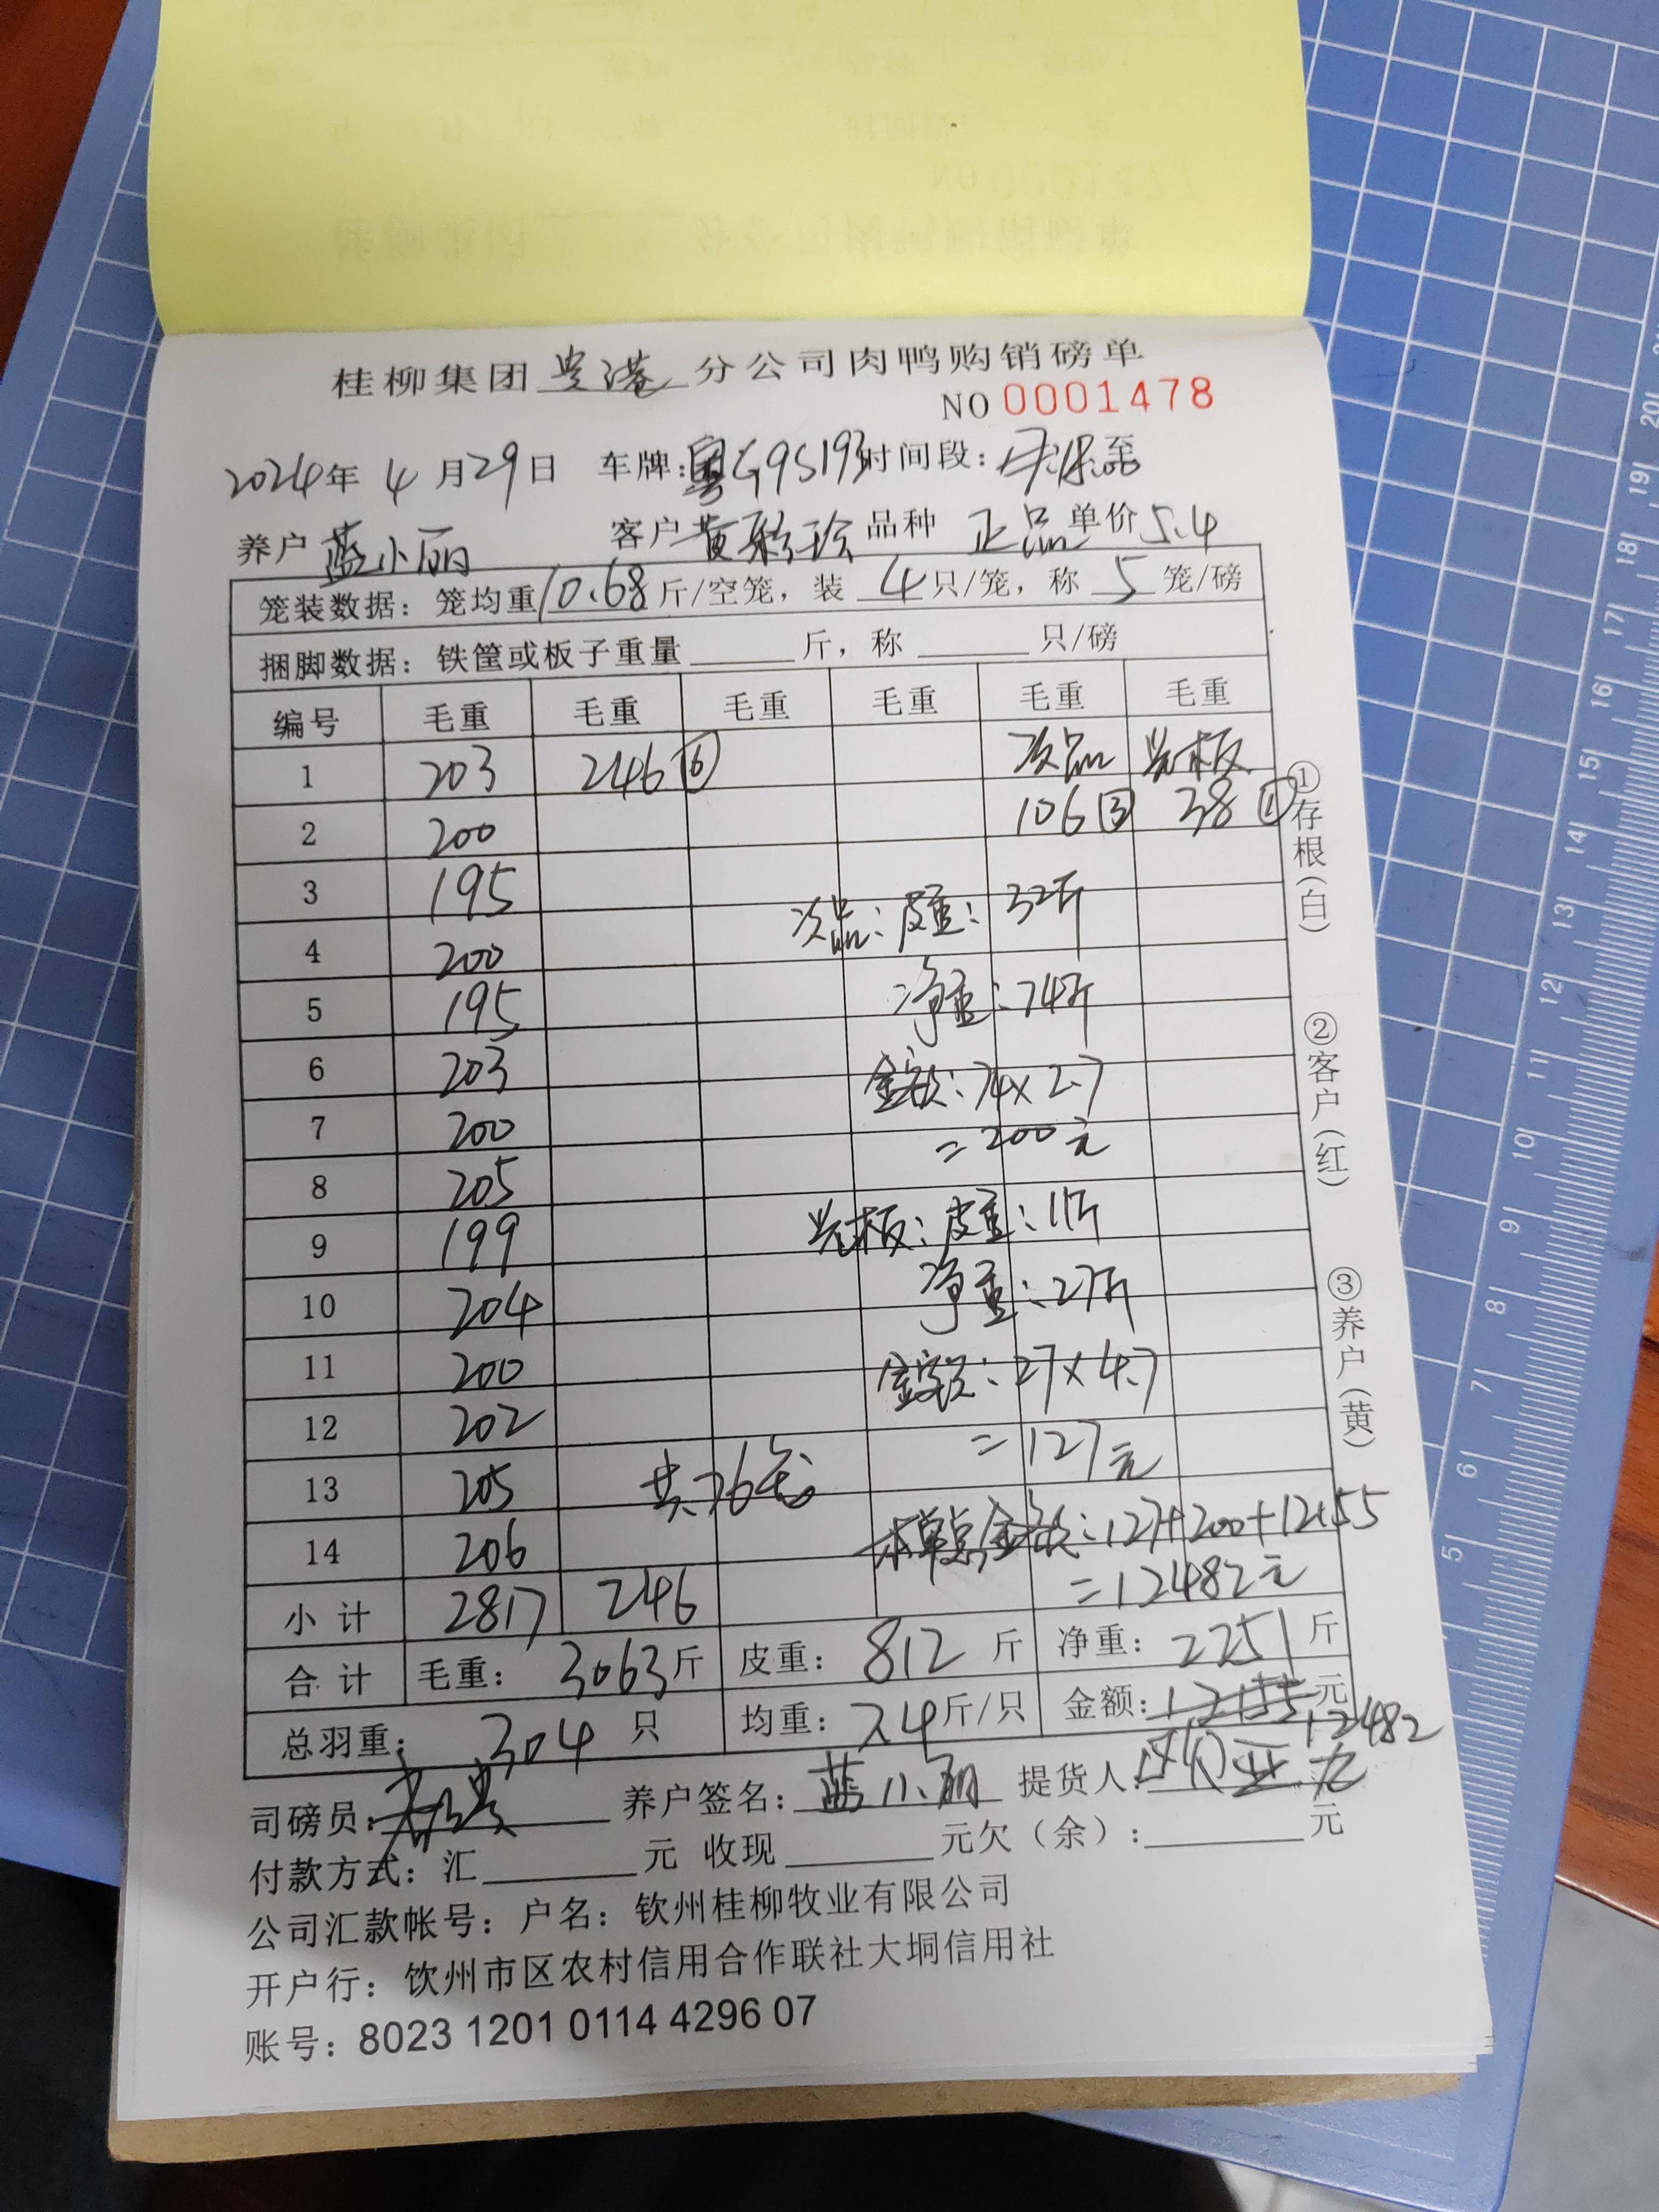 桂柳集团贵港分公司肉鸭购销磅单
NO 0001478
2024年4月29日 车牌:粤G9S193 时间段: 至
养户 蓝小丽 客户 黄 珍 品种 正品 单价 5.4
笼装数据: 笼均重 10.68 斤/空笼, 装 4 只/笼, 称 5 笼/磅
捆脚数据: 铁筐或板子重量 斤, 称 只/磅
编号 毛重 毛重 毛重 毛重 毛重 毛重
1 203 246⑥ 次品 光板
2 200 106③ 38①
3 195
次品: 皮重: 32斤
4 200
5 195 净重: 74斤
6 203 金额: 74×2.7
7 200 =200元
8 205
9 199 光板: 皮重: 11斤
10 204 净重: 27斤
11 200 金额: 27×4.7
12 202 =127元
13 205 共76笼
14 206 本单总金额: 127+200+12155
=12482元
小计 2817 246
合计 毛重: 3063斤 皮重: 812 斤 净重: 2251斤
总羽重: 304 只 均重: 7.4斤/只 金额: 12155元
12482
司磅员: 养户签名: 蓝小丽 提货人:
付款方式: 汇 元 收现 元欠(余): 元
公司汇款帐号: 户名: 钦州桂柳牧业有限公司
开户行: 钦州市区农村信用合作联社大垌信用社
账号: 8023 1201 0114 4296 07
①存根(白)
②客户(红)
③养户(黄)